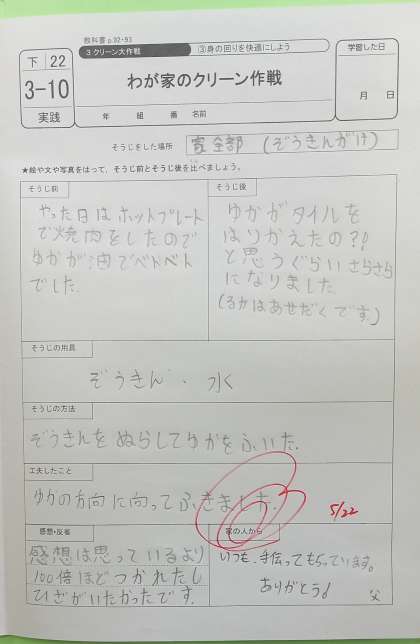 教科書 p.92・93
3 クリーン大作戦
③身の回りを快適にしよう
下 22
3-10
実践
わが家のクリーン作戦
年 組 番 名前
学習した日
月 日
そうじをした場所
家全部 (ぞうきんがけ)
★絵や文や写真をはって、そうじ前とそうじ後を比べましょう。
そうじ前
やった日はホットプレート
で焼肉をしたので
ゆかが油でベトベト
でした.
そうじ後
ゆかがタイルを
はりかえたの?!
と思うぐらいさらさら
になりました
(るかはあせだくです.)
そうじの用具
ぞうきん・水
そうじの方法
ぞうきんをぬらしてゆかをふいた.
工夫したこと
ゆかの方向に向ってふきました.
5/22
感想・反省
感想は思っているより
100倍ほどつかれたし
ひざがいたかったです.
家の人から
いつも、手伝ってもらっています。
ありがとう♪
父